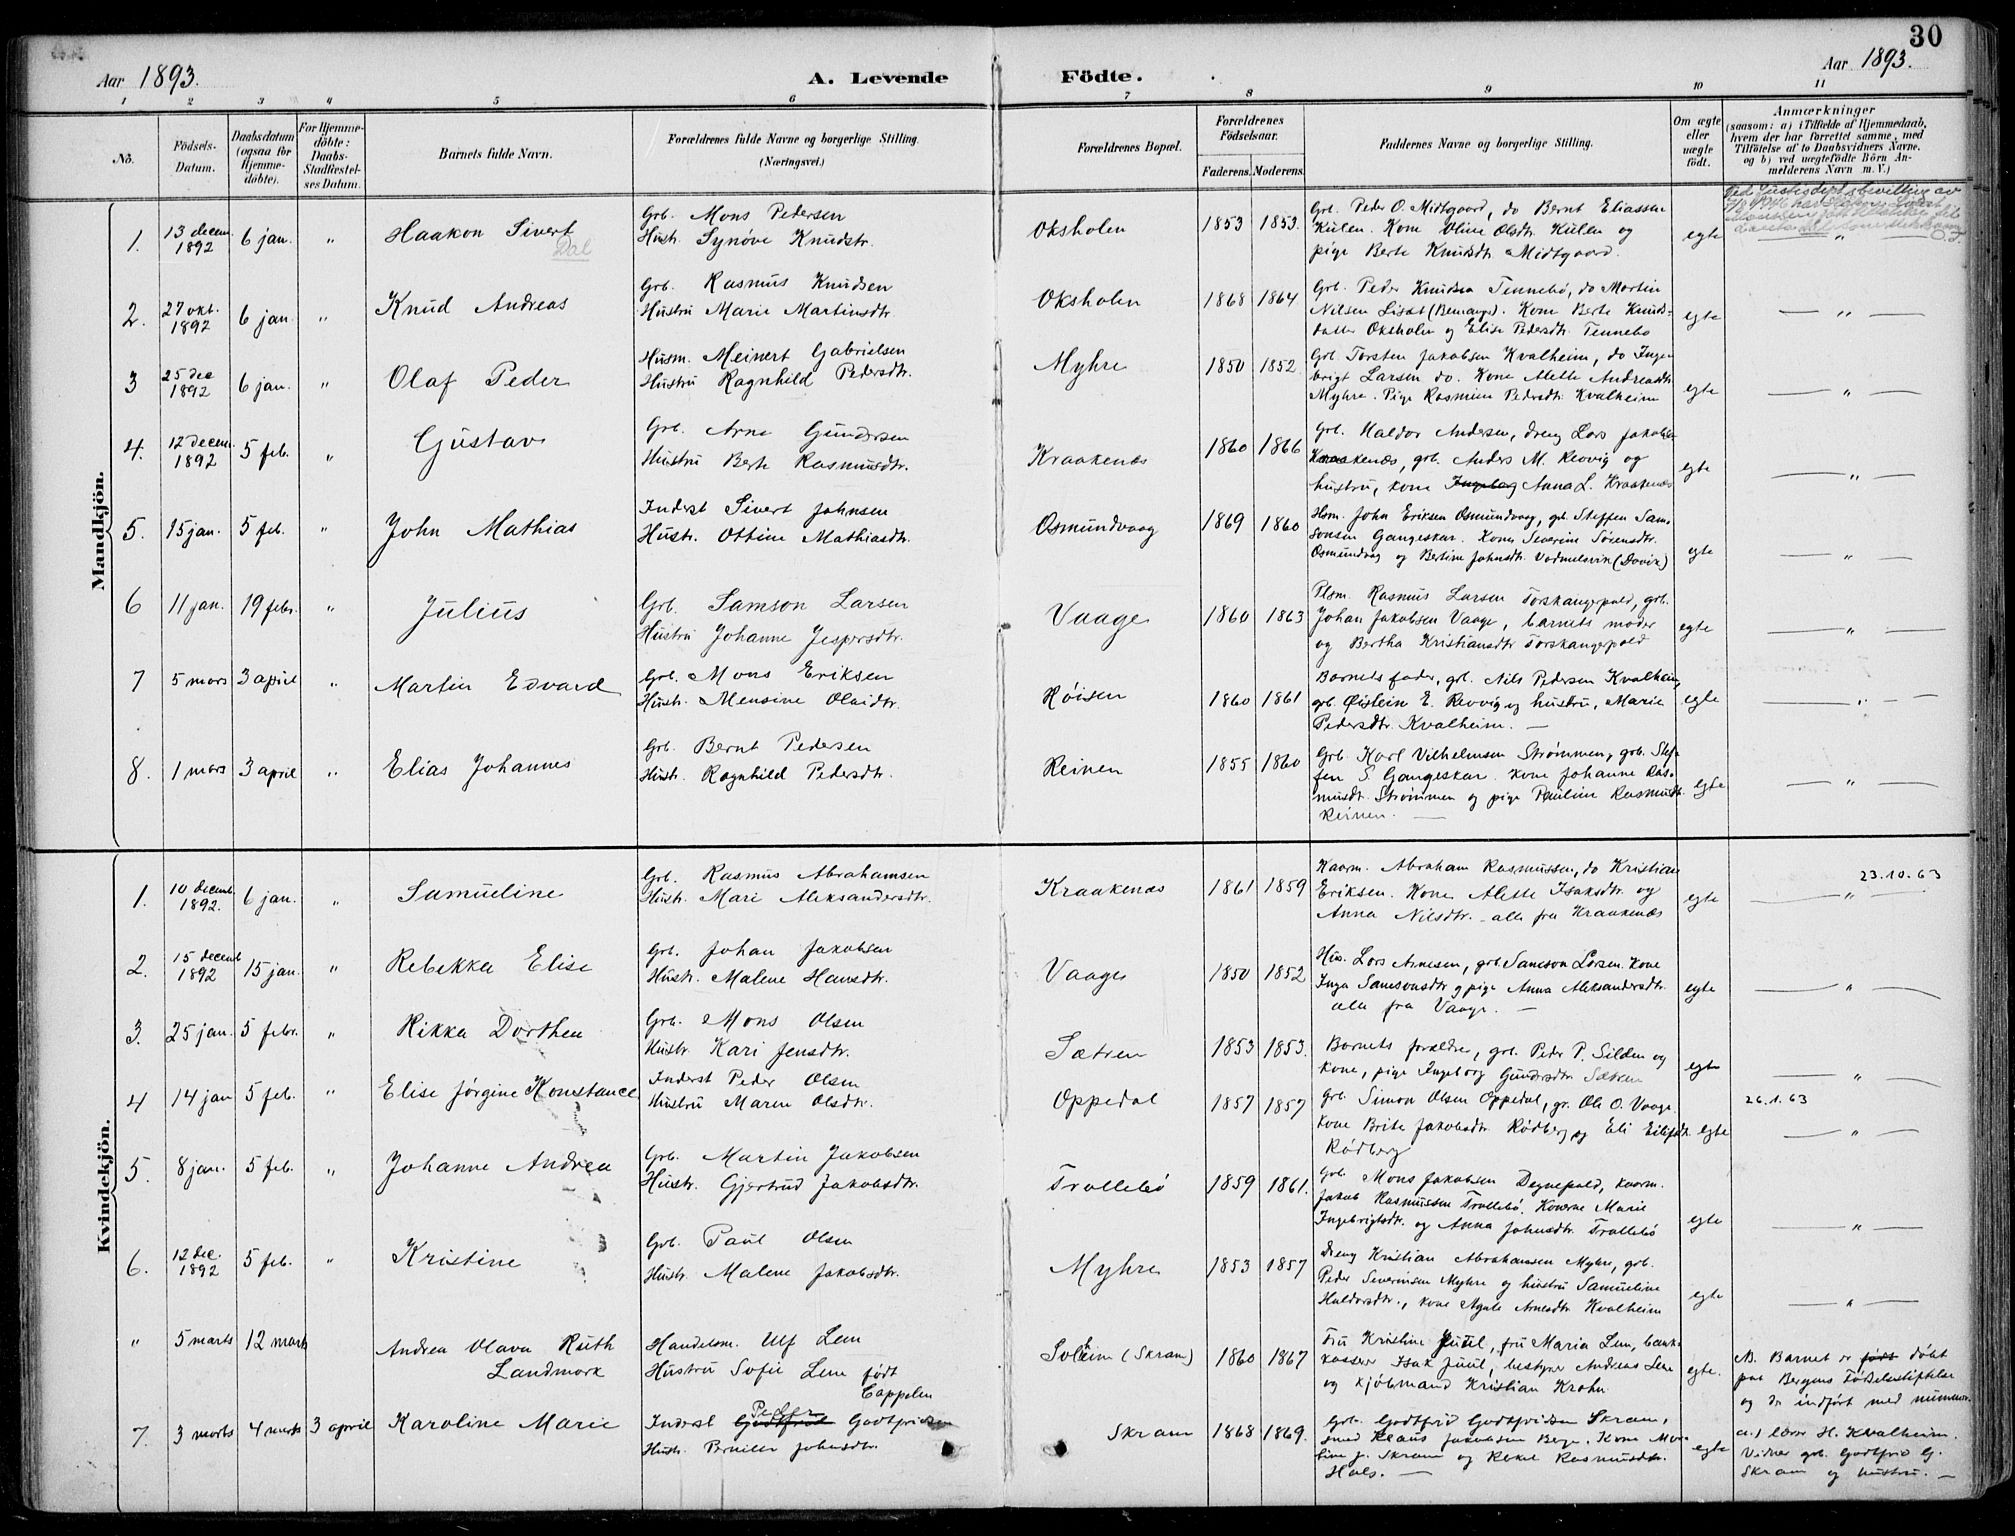 30
Aar 1893. A. Levende Födte. Aar 1893.
1 2 3 4 5 6 7 8 9 10 11
No.
Födsels-Datum.
Daabsdatum (ogsaa for Hjemme-döbte).
For Hjemme-döbte: Daabs-Stadfæstel-ses Datum.
Barnets fulde Navn.
Forældrenes fulde Navne og borgerlige Stilling. (Næringsvei.)
Forældrenes Bopæl.
Forældrenes Födselsaar.
Faderens. Moderens.
Faddernes Navne og borgerlige Stilling.
Om ægte eller uægte födt.
Anmærkninger
(saasom: a) i Tilfælde af Hjemmedaab,
hvem der har forrettet samme, med
Tilföielse af to Daabsvidners Navne.
og b) ved uægtefödte Börn An-
melderens Navn m. V.)
Mandkjön.
1. 13 decem. 1892 6 jan. " Haakon Sivert Dal
Grb. Mons Pedersen
Hustr. Synöve Knudstr.
Oksholen 1853 1853.
Grb. Peder O. Midtgaard, do Bernt Eliassen
Külen. Kone Oline Olsdtr. Külen og
pige Berte Knudsdtr. Midtgaard.
egte "
2. 27 okt. 1892 6 jan. " Knud Andreas
Grb. Rasmus Knudsen
Hustru Marie Martinsdtr
Oksholen 1868 1864
Grb. Peder Knudsen Tennebö, do Martin
Nilsen Liset (Bemanger). Kone Berte Knuds-
datter Oksholen og Elise Pedersdtr. Tennebö
egte "
3 25 dec 1892 6 jan. " Olaf Peder
Husm. Meinert Gabrielsen
Hustru Ragnhild Pedersdtr.
Myhre 1850 1852
Grb. Torsten Jakobsen Kvalheim, do Inge-
brigt Larsen do. Kone Alette Andreasdtr.
Myhre. Pige Rasmine Pedersdtr. Kvalheim
egte "
4. 12 decem. 1892 5 feb. " Gustav
Grb. Arne Gundersen
Hustru Berte Rasmusdtr.
Kraakenes 1860 1866
Grb. Haldor Andersen, dreng Lars Jakobs.
Kraakenæs, grb. Anders M. Revvig og
hustru, kone Ingeborg Anna L. Kraakenæs
egte "
5. 15 jan. 5 feb. " John Mathias
Inderst Sivert Johnsen
Hustr. Ottine Mathiasdtr.
Osmundvaag 1869 1860
Hsm. John Eriksen Osmundvaag, grb. Steffen Sam-
sonsen Gangeskar. Kone Severine Sörensdtr.
Osmundvag og Bertine Johnsdtr. Vadmelsvik (Davik)
egte "
6 11 jan. 19 febr. " Julius
Grb. Samson Larsen
Hustru Johanne Jespersdtr.
Vaage 1860 1863
Plsm. Rasmus Larsen Torskangerpold, grb.
Johan Jakobsen Vaage, barnets moder
og Bertha Kristiansdtr Torskangerpold
egte "
7 5 mars 3 april " Martin Edvard
Grb. Mons Eriksen
Hustr. Mensine Olaidtr.
Höisen 1860 1861
Barnets fader, grb. Nils Pedersen Kvalheim,
grb. Öistein E. Revvig og hustru, Marie
Pedersdtr. Kvalheim.
egte "
8. 1 mars 3 april " Elias Johannes
Grb. Bernt Pedersen
Hustr. Ragnhild Pedersdtr.
Reinen 1855 1860
Grb. Karl Vilhelmsen Strømmen, grb. Stef-
fen S. Gangeskar. Kone Johanne Ras-
musdt. Strømmen og pige Pauline Rasmusdtr.
Reinen.
egte "
Kvindekjön.
1. 10 decemb. 1892. 6 jan. " Samueline
Grb. Rasmus Abrahamsen
Hustr. Mari Aleksandersdtr.
Kraakenæs 1861 1859
Kaarm. Abraham Rasmussen, do Kristian
Eriksen. Kone Alette Isaksdtr. og
Anna Nilsdtr. alle fra Kraakenæs
egte 23.10.63 "
2. 15 decemb 1892 15 jan. " Rebekka Elise
Grb. Johan Jakobsen
Hustr. Malene Hansdtr.
Vaage 1850 1852
Hus. Lars Arnesen, grb. Samson Larsen. Kone
Inga Samsonsdtr og pige Anna Aleksandersdtr.
alle fra Vaage.
egte "
3. 25 jan. 5 febr. " Rikka Dorthea
Grb. Mons Olsen
Hustr. Kari Jensdtr.
Sætren 1853 1853.
Barnets forældre, grb. Peder P. Silden og
kone, pige Ingeborg Gundersdtr Sætren
egte "
4 14 jan 5 feb. " Elise Jörgine Konstance
Inderst Peder Olsen
Hustru Maren Olsdtr.
Oppedal 1857 1857
Grb. Simon Olsen Oppedal, gr. Ole O. Vaage.
Kone Brite Jakobsdtr Rödberg og Eli Eilifsdtr.
Rödberg
egte 26.1.63 "
5. 8 jan. 5 feb. " Johanne Andrea
Grb. Martin Jakobsen
Hustr. Gjertrud Jakobsdtr.
Trollebö 1859 1861.
Grb. Mons Jakobsen Degnepold, kaarm.
Jakob Rasmussen Trollebö. Konerne Marie
Ingebrigtsdtr. og Anna Johnsdtr. Trollebö
egte "
6. 12 dec. 1892 5 feb. " Kristine
Grb. Paul Olsen
Hustr. Malene Jakobsdtr.
Myhre 1853 1857
Dreng Kristian Abrahamsen Myhre, grb.
Peder Severinsen Myhre og hustru Samueline
Haldorsdtr., kone Agate Arnesdtr Kvalheim
egte "
" 5 marts 12 marts Andrea Olava Ruth
Landmark
Handelsm. Ulf Lem
Hustru Sofie Lem født
Cappelen
Solheim (Skram) 1860 1867
Fru Kristine Juul, fru Maria Lem, bank-
kasserer Isak Juul, bestyrer Andreas Lem
og kjöbmand Kristian Krohn.
egte.
N. Barnet er födt döbt
paa Bergens Födselsstiftelse
og der indfört med nummer.
7. 3 marts 4 marts 3 april Karoline Marie
Inderst Godtfried Peder Godtfridsen
Hustr. Pernille Johnsdtr.
Skram 1868 1869.
Grb. Godtfrid Godtfridsen Skram,
smed Klaus Jakobsen Berge. Kone Ma-
line J. Skram og Rakel Rasmusdtr.
Hals.
egte
a.) lærer H. Kvalheim.
Vidner grb. Godtfrid G.
Skram og hustru.